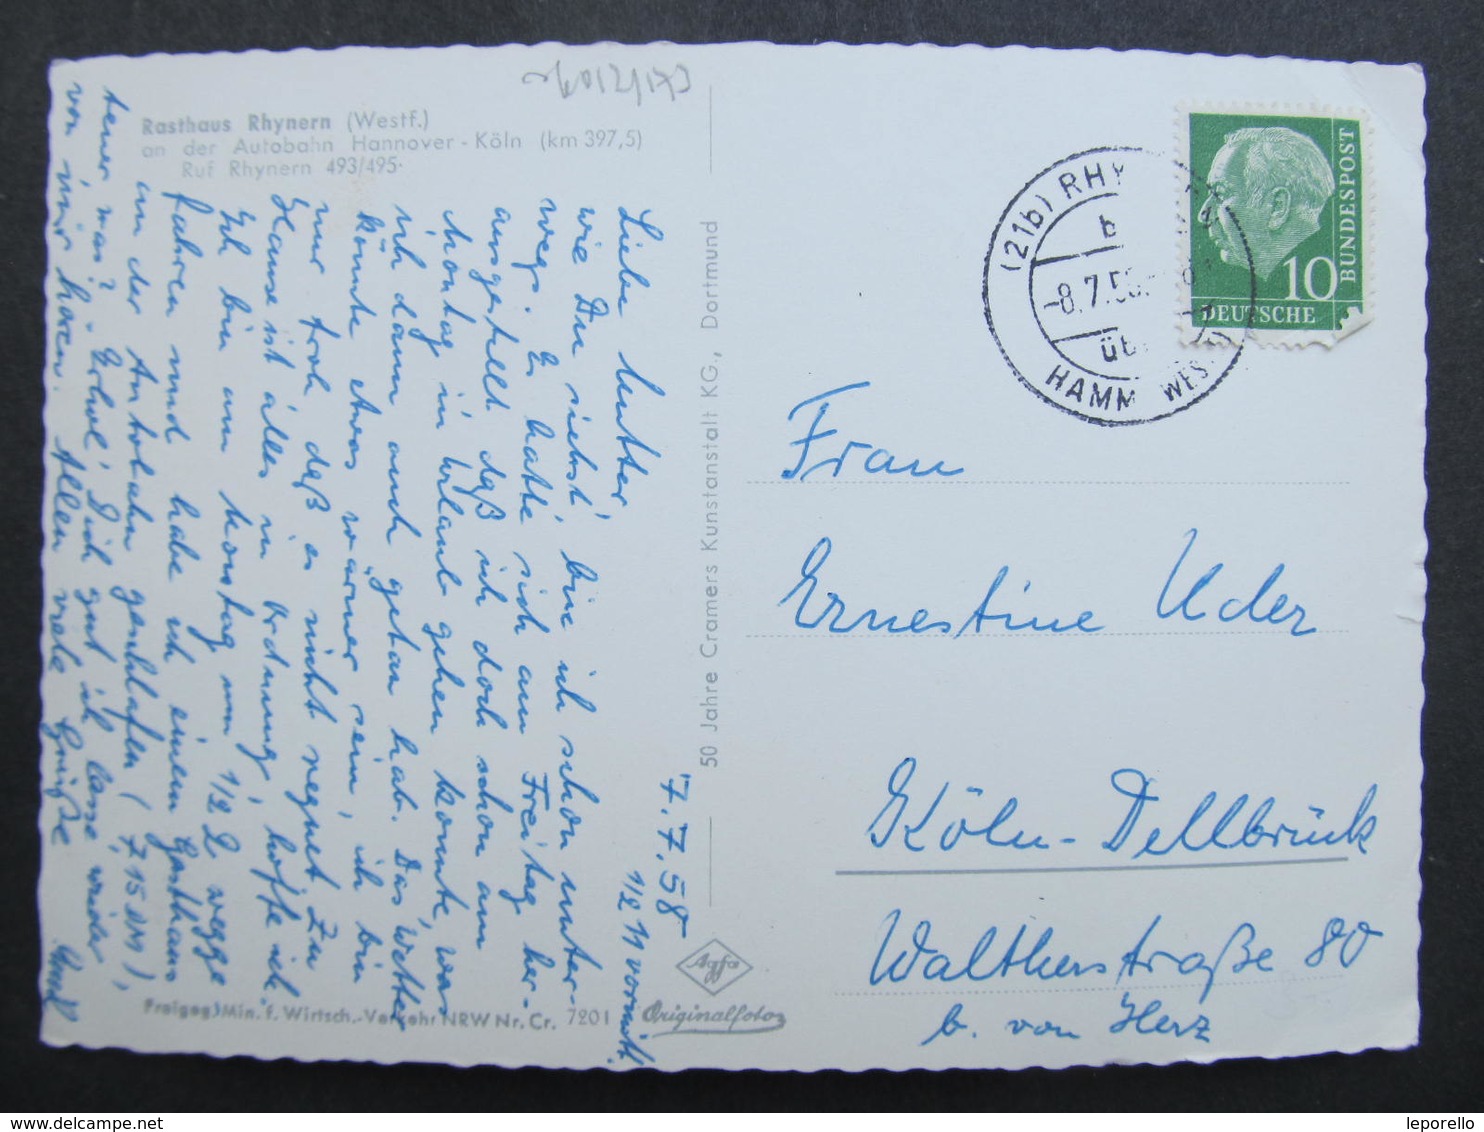 Rasthaus Rhynern (Westf.)
an der Autobahn Hannover - Köln (km 397,5)
Ruf Rhynern 493/495
7.7.58
1/2 11 vormitt.
Liebe Mutter,
wie Du siehst, bin ich schon unter-
wegs. Es hatte sich am Freitag her-
ausgestellt daß ich doch schon am
Montag in Urlaub gehen konnte, was
ich dann auch getan hab. Das Wetter
könnte etwas wärmer sein, ich bin
nur froh daß es nicht regnet. Zu
Hause ist alles in Ordnung, hoffe ich.
Ich bin am Sonntag um 1/2 2 wegge
fahren und habe ich einem Gasthaus
an der Autobahn geschlafen (7,15 DM),
teuer, was? - Erhol' Dich gut ich lasse wieder
von mir hören. Allen viele Grüße
50 Jahre Cramers Kunstanstalt KG, Dortmund
Freigeg. Min. f. Wirtsch.-Verkehr NRW Nr. Cr. 7201
Agfa
Originalfoto
(21b) RHY
b
-8.7.58
üb
HAMM WEST
10
DEUTSCHE
BUNDESPOST
Frau
Ernestine Uder
Köln-Dellbrück
Waltherstraße 80
b. von Herz
leporello